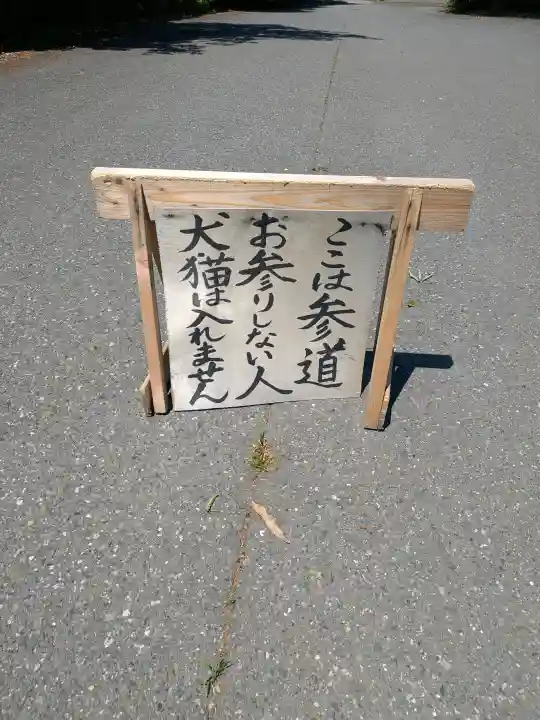 ここは参道
お参りしない人
犬猫は入れません